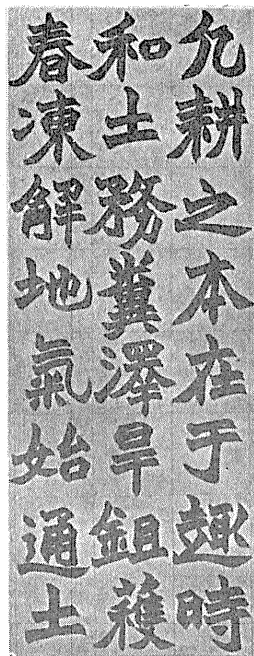 凢耕之本在于趣時
和土務糞澤旱鉏穫
春凍解地氣始通土